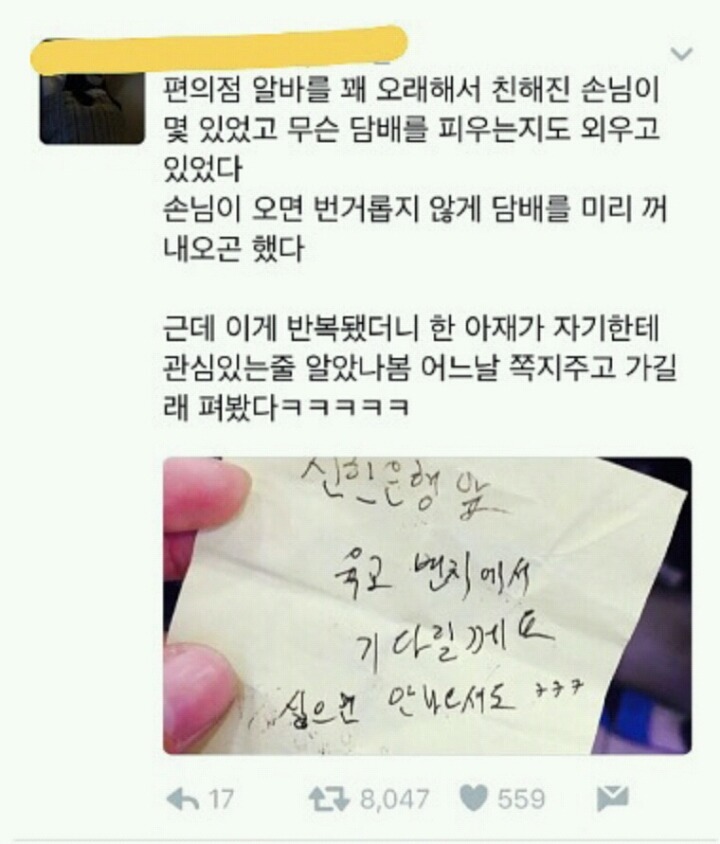 편의점 알바를 꽤 오래해서 친해진 손님이
몇 있었고 무슨 담배를 피우는지도 외우고
있었다
손님이 오면 번거롭지 않게 담배를 미리 꺼
내오곤 했다
근데 이게 반복됐더니 한 아재가 자기한테
관심있는줄 알았나봄 어느날 쪽지주고 가길
래 펴봤다ㅋㅋㅋㅋㅋ
신한은행 앞
육교 벤치에서
기다릴께요
싫으면 안나오셔도 ㅋㅋㅋ
17 8,047 559